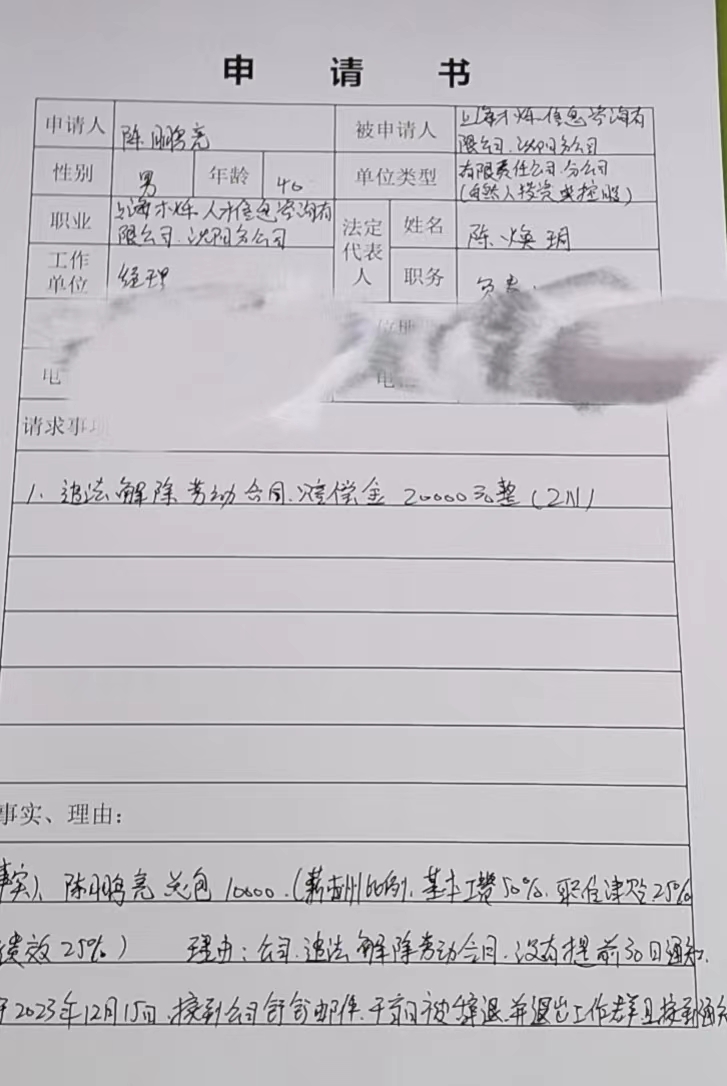 申 请 书
申请人 陈鹏亮 被申请人 上海才烁信息咨询有
限公司.沈阳分公司
性别 男 年龄 40 单位类型 有限责任公司.分公司
(自然人投资或控股)
职业 上海才烁人才信息咨询有
限公司.沈阳分公司 法定代表人 姓名 陈焕玥
工作单位 经理 职务 负责
电 电
请求事项
1、违法解除劳动合同.赔偿金20000元整(2N)
事实、理由:
事实)、陈鹏亮总包10000.(薪酬比例.基本工资50%.职位津贴25%
绩效25%) 理由:公司.违法解除劳动合同.没有提前30日通知.
于2023年12月15日.接到公司 邮件.于前日被辞退.并退出工作群且接到通知